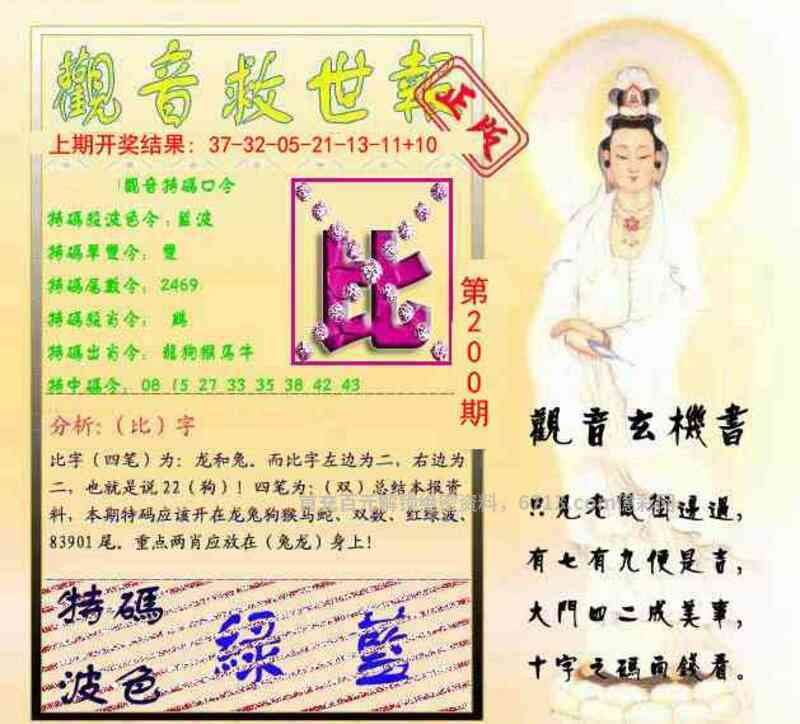 觀音救世報
正版
上期开奖结果：37-32-05-21-13-11+10
觀音特碼口令
特碼殺波色令：藍波
特碼單雙令：雙
特碼尾數令：2469
特碼殺肖令：
特碼出肖令：龍狗猴馬牛
特中碼令：08 15 27 33 35 38 42 43
比
第200期
分析:（比）字
比字（四笔）为：龙和兔。而比字左边为二，右边为
二，也就是说22（狗）！四笔为：（双）总结本报资
料，本期特码应该开在龙兔狗猴马蛇、双数、红绿波、
83901尾。重点两肖应放在（兔龙）身上！
特碼
波色
綠 藍
觀音玄機書
只見
有七有九便是吉，
大門四二成美事，
十字之碼向錢看。